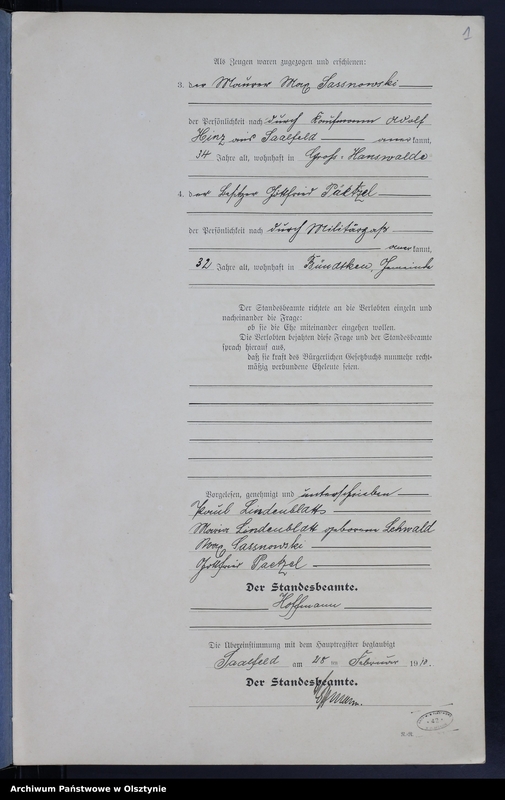 1
Als Zeugen waren zugezogen und erschienen:
3. der Maurer Max Sassnowski
der Persönlichkeit nach durch Kaufmann Adolf
Hinz aus Saalfeld anerkannt,
34 Jahre alt, wohnhaft in Gross-Hanswalde
4. der Besitzer Gottfried Paetzel
der Persönlichkeit nach durch Militärpaß
anerkannt,
32 Jahre alt, wohnhaft in Kündtken, Gemeinde
Der Standesbeamte richtete an die Verlobten einzeln und
nacheinander die Frage:
ob sie die Ehe miteinander eingehen wollen.
Die Verlobten bejahten diese Frage und der Standesbeamte
sprach hierauf aus,
daß sie kraft des Bürgerlichen Gesetzbuchs nunmehr recht-
mäßig verbundene Eheleute seien.
Vorgelesen, genehmigt und unterschrieben
Paul Lindenblatt
Maria Lindenblatt geborene Lehwald
Max Sassnowski
Gottfried Paetzel
Der Standesbeamte.
Hoffmann
Die Übereinstimmung mit dem Hauptregister beglaubigt
Saalfeld am 28 ten Februar 1910.
Der Standesbeamte.
Archiwum Państwowe w Olsztynie